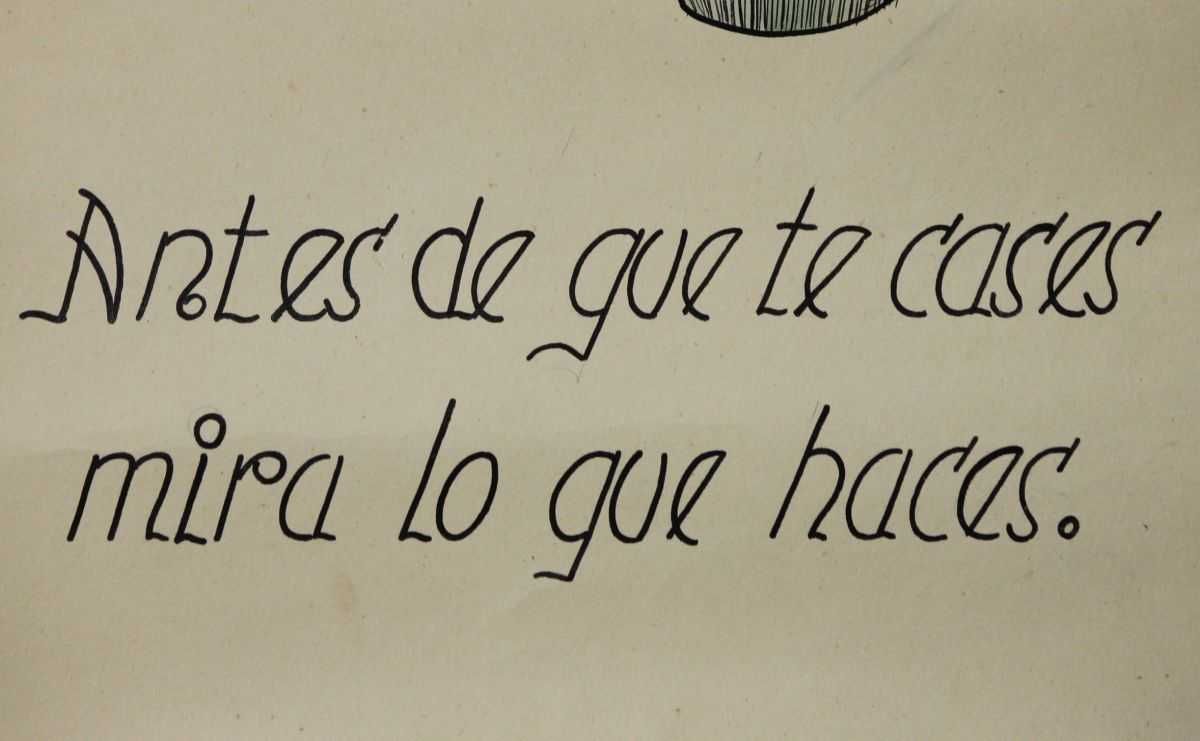 Antes de que te cases
mira lo que haces.